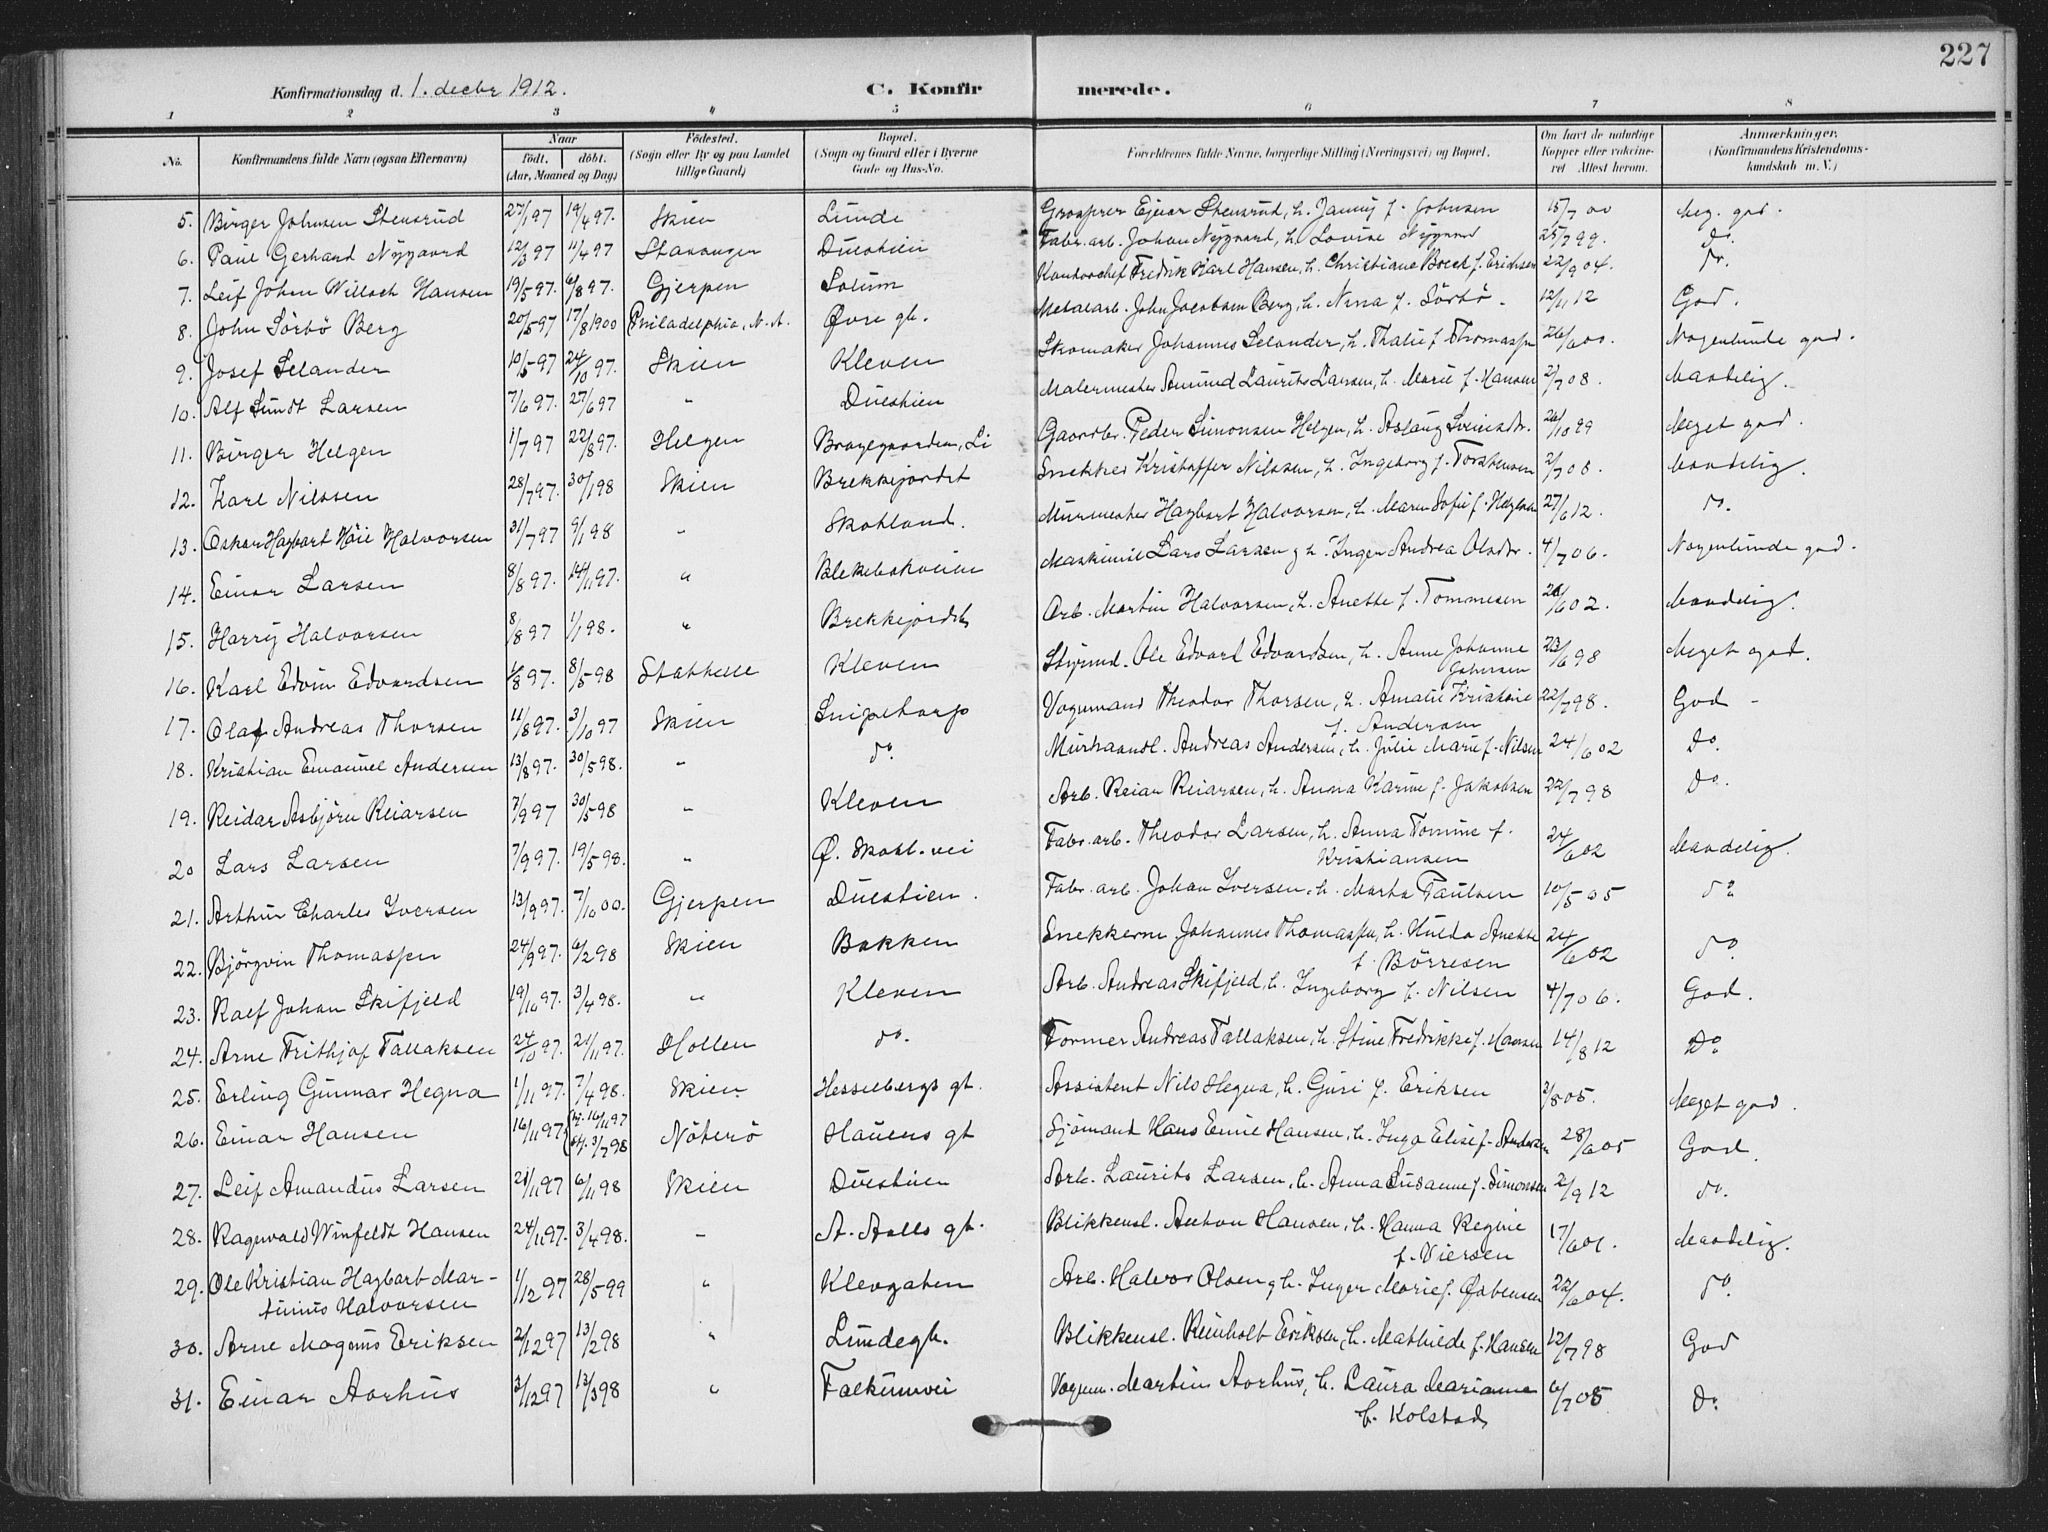 227
Konfirmationsdag d. 1. decbr 1912. C. Konfirmerede.
1 2 3 4 5 6 7 8
No. Konfirmandens fulde Navn (ogsaa Efternavn) Naar født, døbt. (Aar, Maaned og Dag) Fødested. (Sogn eller By og paa Landet tillige Gaard) Bopæl. (Sogn og Gaard eller i Byerne Gade og Hus-No. Forældrenes fulde Navne, borgerlige Stilling (Næringsvei) og Bopæl. Om havt de naturlige Kopper eller vaccineret. Attest herom. Anmærkninger. (Konfirmandens Kristendomskundskab m. V.)
5. Birger Johnsen Stensrud 27/1 97 19/4 97. Skien Lunde Grosserer Ejvar Stensrud, h. Janny f. Johnsen 15/7 00 Meg. god.
6. Paul Gerhard Nygaard 12/3 97 11/4 97 Stavanger Duestien Fabr. arb. Johan Nygaard, h. Lovise Nygaard 25/7 99. do.
7. Leif John Willoch Hansen 19/5 97. 6/8 97. Gjerpen Solum Kontorchef Fredrik Karl Hansen, h. Christiane Boeck f. Erichsen 22/9 04. do.
8. John Sörbö Berg 20/5 97 17/8 1900 Philadelphia, N. A. Øvre gt. Metalarb. John Jacobsen Berg, h. Nina f. Sörbö. 12/11 12 God.
9. Josef Selander 10/5 97 24/10 97. Skien Kleven Skomaker Johannes Selander, h. Thalie f. Thomassen 26/6 00. Nogenlunde god.
10. Alf Lundt Larsen 7/6 97. 27/6 97 " Duestien Malermester Amund Laurits Larsen, h. Marie f. Hansen 2/7 08. Maadelig.
11. Birger Helgen 1/7 97 22/8 97. Helgen Bragegaarden, Li Gaardbr. Peder Simonsen Helgen, h. Aslaug Sveinsdr. 26/10 99 Meget god.
12. Karl Nilssen 28/7 97. 30/1 98 Skien Brekkejordet Snekker Kristoffer Nilssen, h. Ingeborg f. Torstensen 2/7 08. Maadelig.
13. Oskar Hagbart Höie Halvorsen 31/7 97 9/1 98 " Skotland. Murmester Hagbart Halvorsen, h. Maren Sofie f. 27/6 12. do.
14. Einar Larsen 8/8 97. 14/11 97. " Blekebakveien Maskinist Lars Larsen, h. Inger Andrea Olsdr. 4/7 06. Nogenlunde god.
15. Harry Halvorsen 8/8 97 1/1 98. " Brekkejordet Arb. Martin Halvorsen, h. Anette f. Tommesen 26/6 02. Maadelig.
16. Karl Edvin Edvardsen 1/8 97. 8/5 98 Stathelle Kleven Styrmd. Ole Edvart Edvardsen, h. Anne Johanne Johnsen 23/6 98 Meget god.
17. Olaf Andreas Thorsen 11/8 97. 3/10 97 Skien Snipetorp Vognmand Theodor Thorsen, h. Amalie Kristine f. Andersen 22/7 98. God -
18. Kristian Emanuel Andersen 13/8 97. 30/5 98. " do. Murhaandl. Andreas Andersen, h. Julie Marie f. Nilsen 24/6 02 Do.
19. Reidar Asbjörn Reiarsen 7/9 97 30/5 98 " Kleven Arb. Reiar Reiarsen, h. Anna Karine f. Jakobsen 22/7 98 Do.
20 Lars Larsen 7/9 97. 19/5 98. " Ø. Skotl. vei Fabr. arb. Theodor Larsen, h. Anna Tomine f. Kristiansen 24/6 02 Maadelig.
21. Arthur Charles Iversen 13/9 97. 7/10 00. Gjerpen Duestien. Fabr. arb. Johan Iversen, h. Marta Paulsen 10/5 05 do
22. Björgvin Thomassen 24/9 97. 6/2 98 Skien Bakken Snekkerm Johannes Thomassen, h. Hulda Anette f. Börresen 24/6 02 do.
23. Ralf Johan Skifjeld 19/10 97. 3/4 98. " Kleven Arb. Andreas Skifjeld, h. Ingeborg f. Nilsen 4/7 06. God.
24. Arne Frithjof Tallaksen 24/10 97. 21/11 97. Hollen do. Former Andreas Tallaksen, h. Stine Fredrikke f. Hansen 14/8 12 Do
25. Erling Gunnar Hegna 1/11 97. 7/4 98. Skien. Hesselbergs gt. Assistent Nils Hegna, h. Guri f. Eriksen 3/8 05. Meget god.
26. Einar Hansen 16/11 97 (hj. 16/11 97 st. 3/7 98 Nöterö Hauens gt Sjömand Hans Emil Hansen, h. Inga Elise f. Andersen 28/6 05 God.
27. Leif Amandus Larsen 21/11 97 6/11 98 Skien Duestien Arb. Laurits Larsen, h. Anna Susanne f. Simonsen 2/9 12 do.
28. Ragnvald Winfeldt Hansen 24/11 97. 3/4 98. " A. Aalls gt. Blikkensl. Anton Hansen, h. Hanna Regine f. Viersen 17/6 01. Maadelig.
29. Ole Kristian Hagbart Martinius Halvorsen 1/12 97 28/5 99 " Klevgaten Arb. Halvor Olsen, h. Inger Marie f. Østensen 22/6 04. do.
30. Arne Magnus Eriksen 2/12 97 13/2 98 " Lundegt. Blikkensl. Reinholt Eriksen, h. Mathilde f. Hansen 12/7 98 God
31. Einar Aarhus 3/12 97 13/3 98 " Falkumvei Vognm. Martin Aarhus, h. Laura Marianne f. Kolstad 6/7 05 Do.